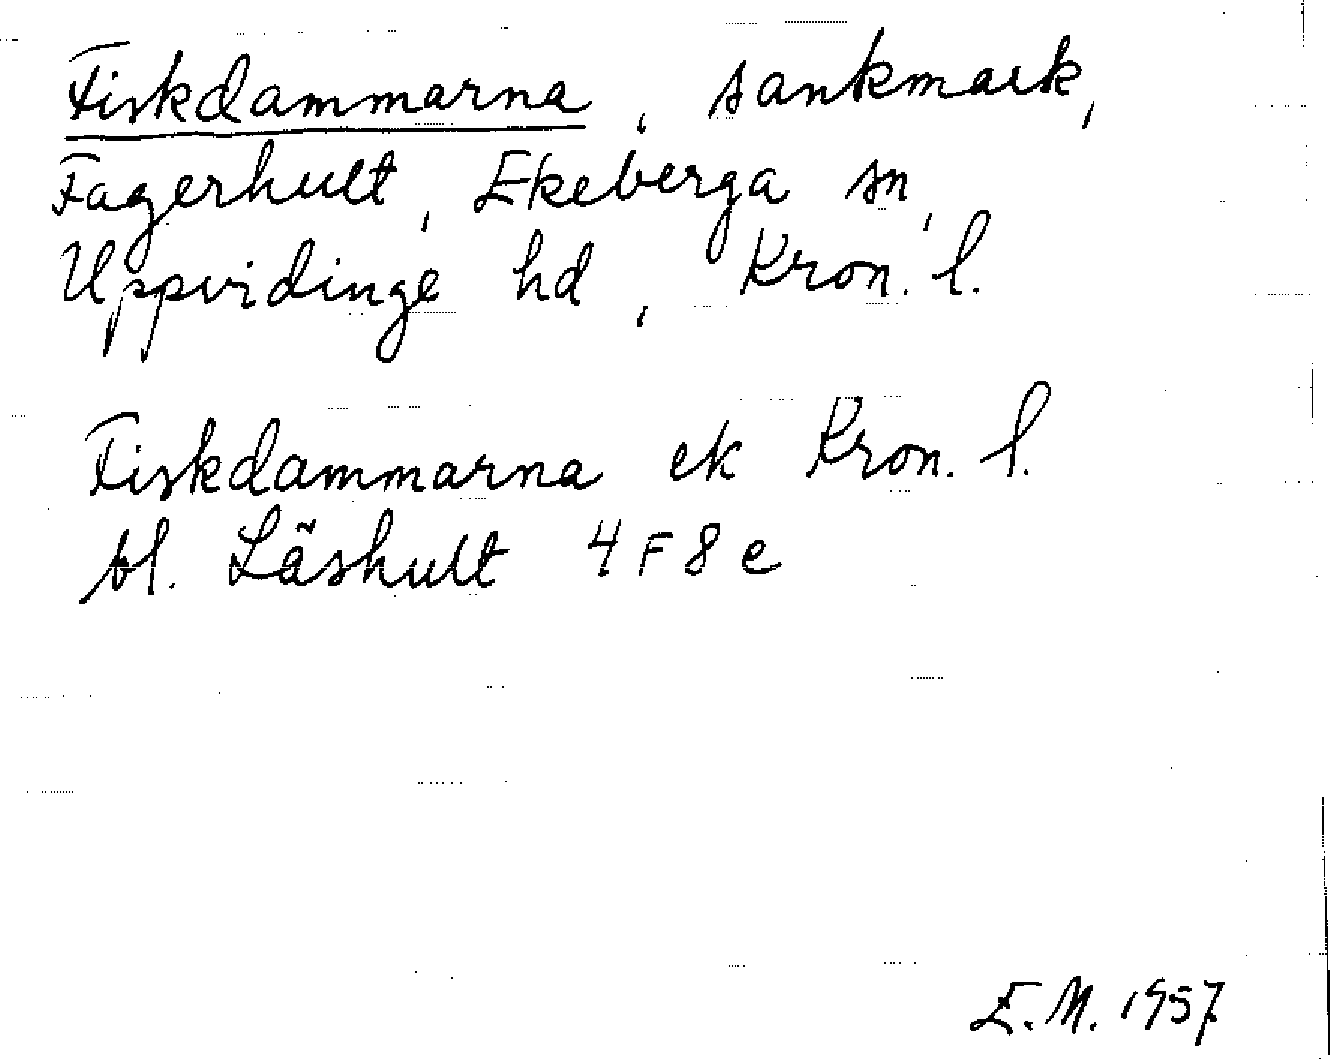 Fiskdammarna, sankmark,
Fagerhult, Ekeberga sn,
Uppvidinge hd, Kron. l.
Fiskdammarna ek Kron. l.
bl. Läshult 4F8e
E.M. 1957